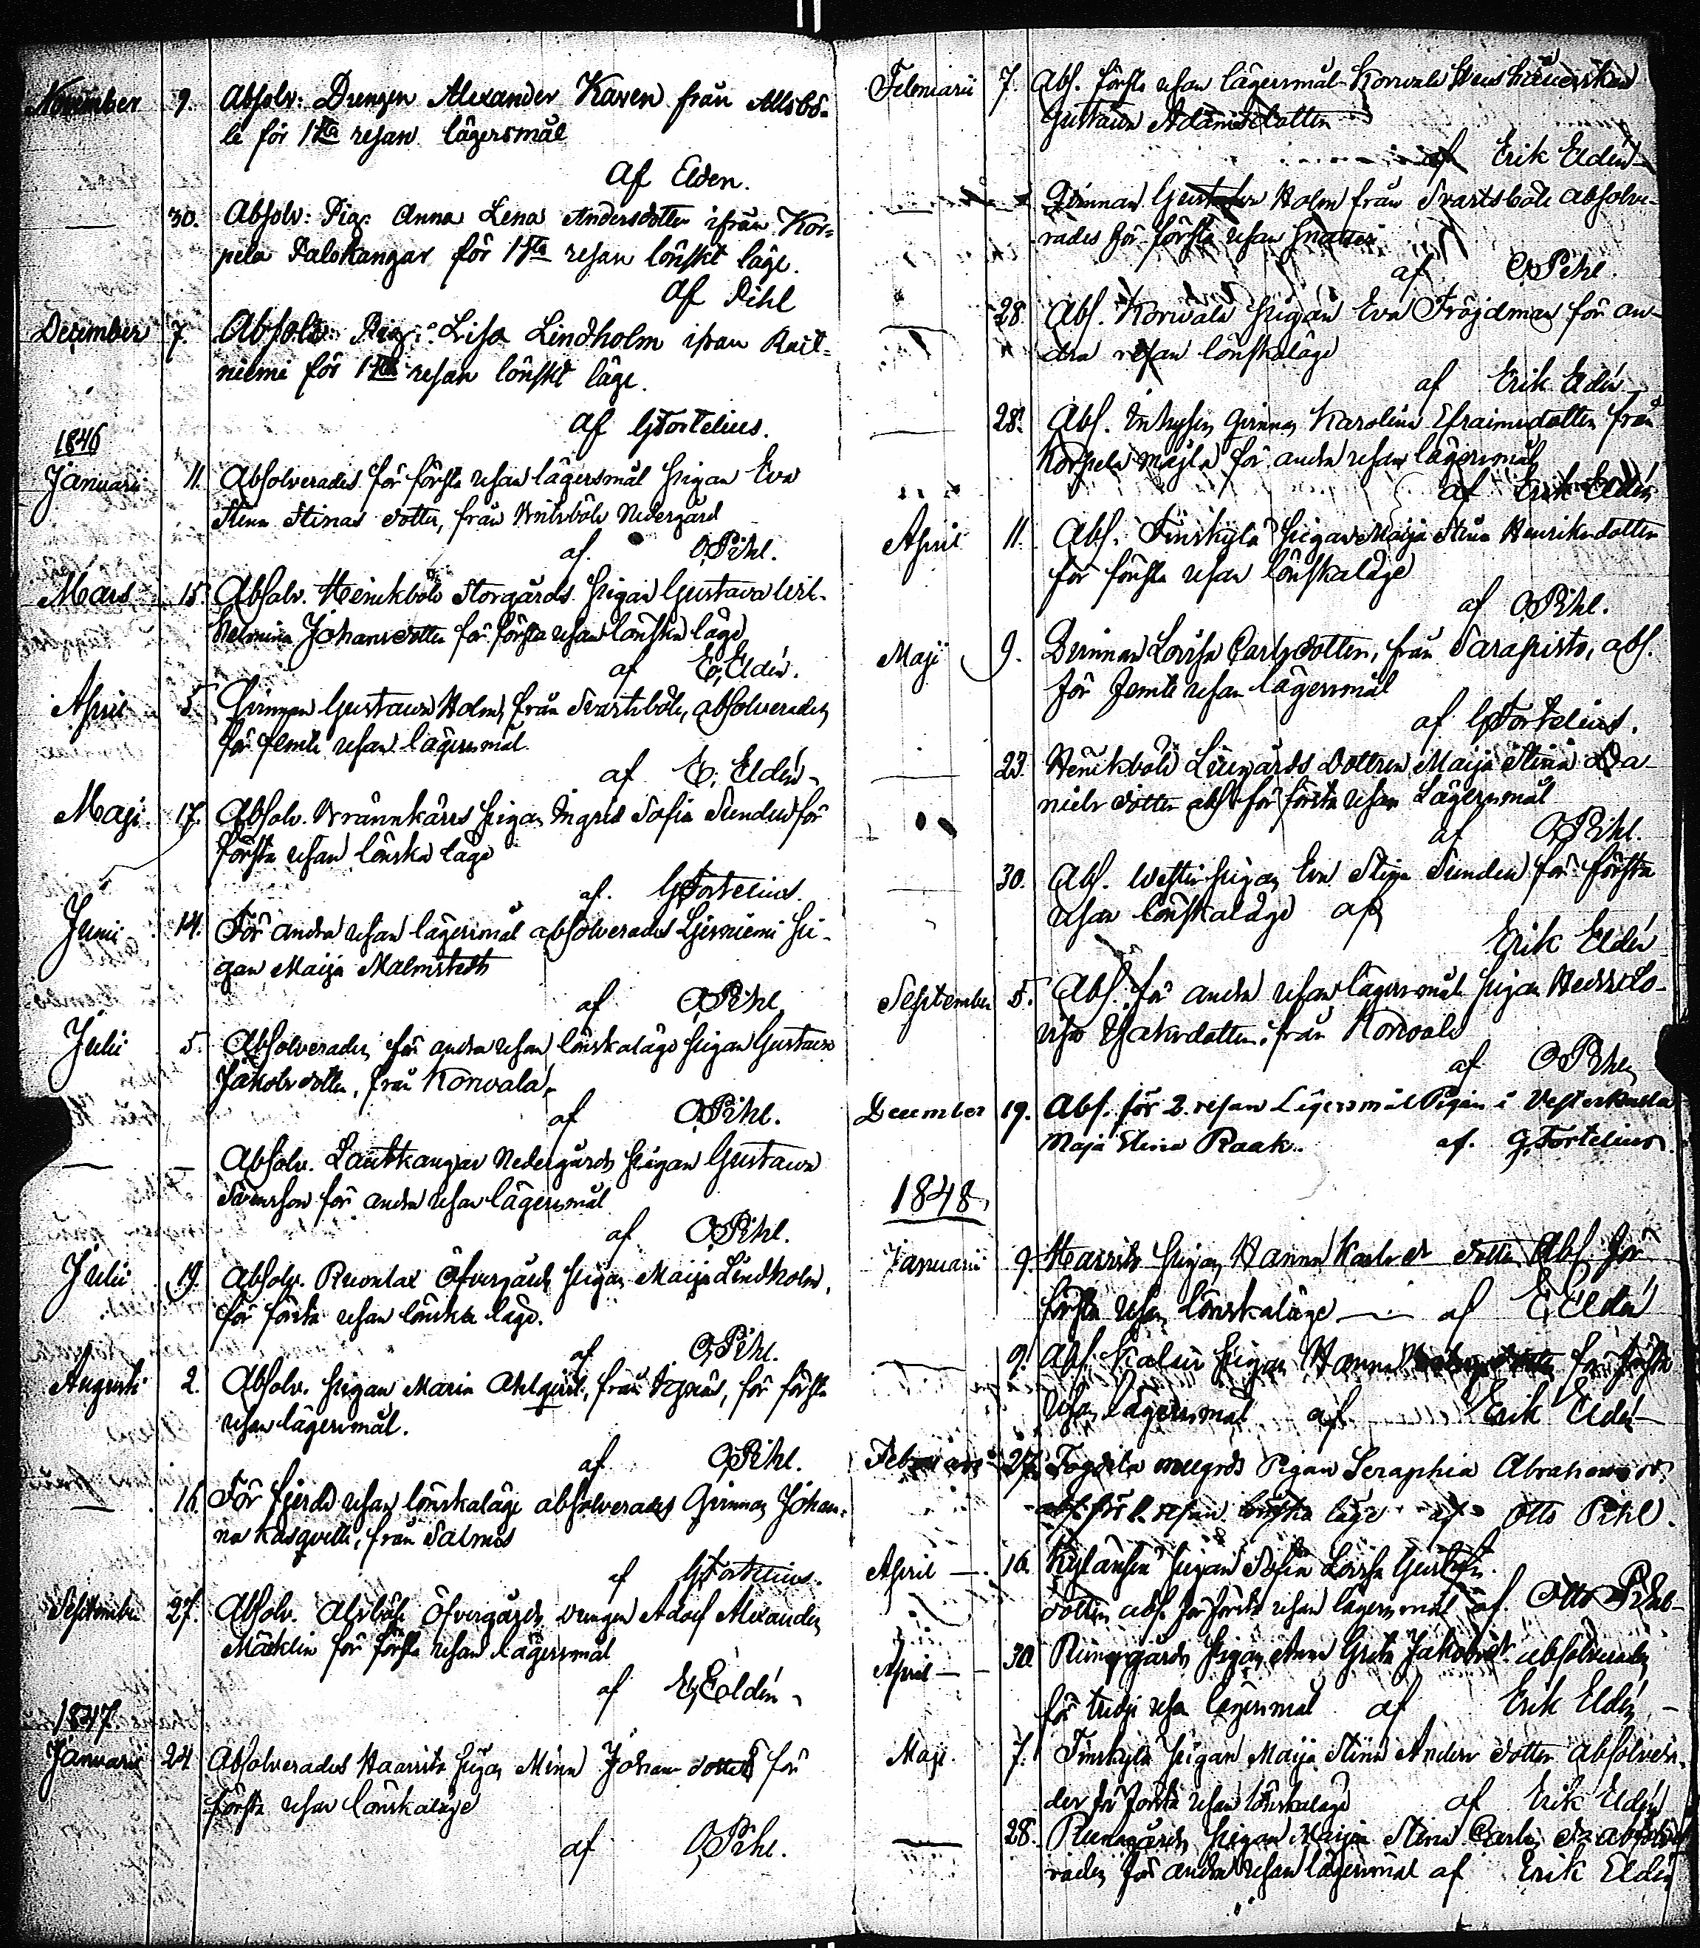 November 9. Absolv: Drengen Alexander Karen från Allsbö-
le för 1sta resan lägersmål
Af Elden.
— 30. Absolv: Pig: Anna Lena Andersdotter ifrån Kor-
pela Palokangar för 1sta resan lönskt läge.
Af Pihl
December 7. Absolv: Pig: Lisa Lindholm ifrån
niemi för 1sta resan lönskt läge.
Af GFortelius.
1846
Januari 11. Absolverades för första resan lägersmål pigan Eva
Stina Stinas dotter, från Nedergård
af. O,Pihl.
Mars 15 Absolv. Henrikböle Storgårds pigan Gustava Wil-
helmina Johansdotter för första resan lönska läge
af E, Eldén.
April 5 Qvinnan Gustava Holm, från Svartsböle, absolverades
för femte resan lägersmål.
af E, Eldén-
Maji 17. Absolv. Wrännkärrs pigan Ingrid Sofia Sunden för
första resan lönska läge
af. GFortelius.
Juni 14. För andra resan lägersmål absolverades pi-
gan Maija Malmstedt
af OPihl
Julii 5. Absolverades för andra resan lönskaläge pigan Gustava
Jakobsdotter, från Korvala,
af OPihl.
— — Absolv. Lautkangar Nedergårds pigan Gustava
Svensson för andra resan lägersmål
af OPihl.
Julii 19. Absolv. Öfvergårds pigan Maija Lindholm,
för första resan lönska läge.
af O,Pihl.
Augusti 2. Absolv. pigan Maria Ahlqvist, från för första
resan lägersmål.
af O,Pihl.
— 16. För fjerde resan lönskaläge absolverades Qvinnan Johan-
na Kasqvilt, från Salmis
af GFortelius.
September 27. Absolv. Alsböle Öfvergårds drengen Adolf Alexander
Mäcklin för första resan lägersmål
af E,Eldén-
1847
Januarii 24 Absolverades Haarita pigan Mina Johans dotter för
första resan lönskaläge
af O,Pihl.
Februarii 7. Abs. första resan lägersmål Korvala
Gustava Adamsdotter
af Erik Eldén
— Qvinnan Gustafva Holm från Svartsböle absolve-
rades för första resan
af O,Pihl.
— 28 Abs. Korvala pigan Eva Fröjdman för an-
dra resan lönskaläge
af Erik Eldén
— 28. Abs. Inhyses qvinnan Karolina Efraimsdotter från
Korpela för andra resan lägersmål
af Erik Eldén
April 11. Abs. Finskyla pigan Maija Stina Henriksdotter
för första resan lönskaläge
af O,Pihl.
Maji 9. Qvinnan Lovisa Carlsdotter, från Sarapisto, abs.
för femte resan lägersmål
af GFortelius.
— 23. Henriksböle dottren Maija Stina Da-
niels dotter abs. för första resan Lägersmål
af OPihl.
— 30. Abs. pigan Eva Stina Sunden för första
resan lönskaläge af
Erik Eldén
September 5. Abs. för andra resan lägersmål pigan Hedda Lo-
visa Isaksdotter, från Korvala
af OPihl
December 19. Abs. för 2. resan Lägersmål Pigan i Vesterkulla
Maja Stina Raak.. af. G,Fortelius
1848,
Januarii 9. Haarita pigan Hanna dotter Abs. för
första resan lönskaläge — af E,Eldén
— 9. Abs. pigan Hanna för första
resan lägersmål af Erik Eldén—
Februarii 27. Pigan Seraphia
abs. för 1. resan lönska läge af Otto Pihl.
April — 16. pigan Sofia Lovisa
dotter abs. för första resan lägersmål af Otto Pihl-
April — 30. pigan Anna Greta absolverades
för tredje resa lägersmål af Erik Eldén —
Maji. 7. Finskyla pigan Maija Stina Anders dotter absolvera-
des för första resan lönskaläge af Erik Eldén
— 28. pigan Maija Stina absolve-
rades för andra resan lägersmål af Erik Eldén